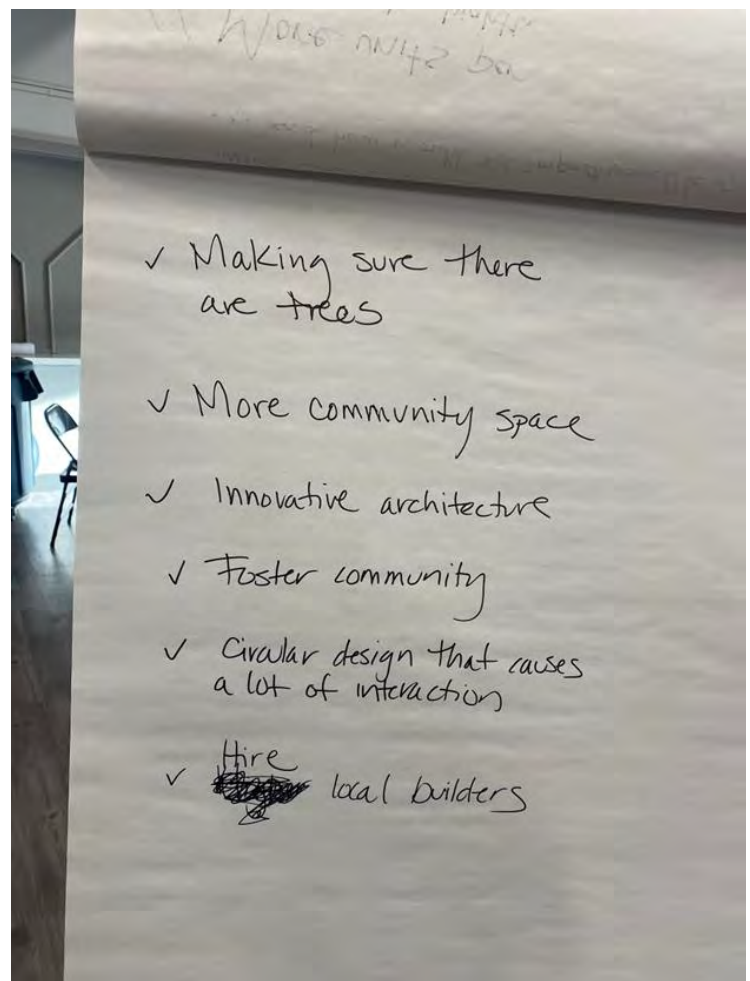 More units per
✓ Making sure there
are trees
✓ More community space
✓ Innovative architecture
✓ Foster community
✓ Circular design that causes
a lot of interaction
Hire
✓ local builders